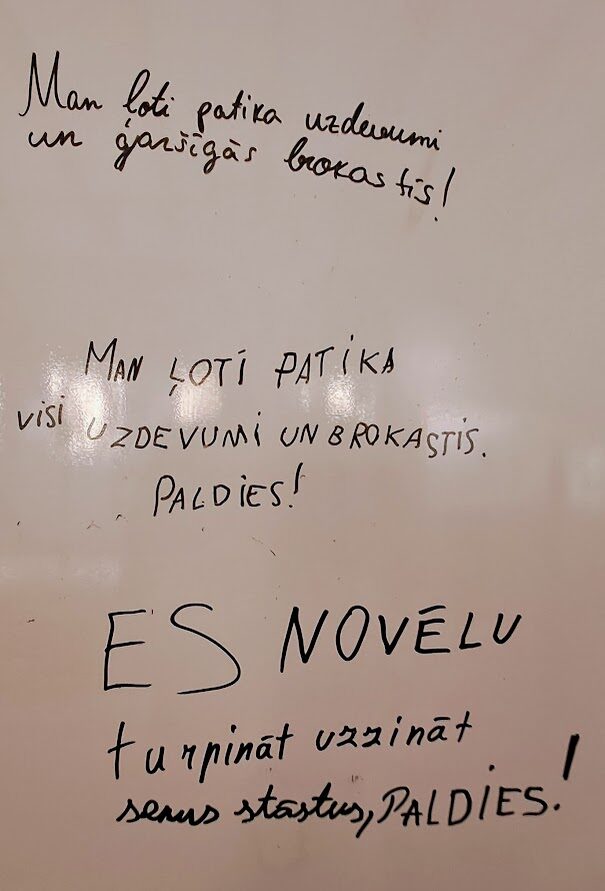 Man ļoti patika uzdevumi
un garšīgās brokastis!
MAN ĻOTI PATIKA
visi UZDEVUMI UN BROKASTIS.
PALDIES!
ES NOVĒLU
turpināt uzzināt
senus stāstus, PALDIES!